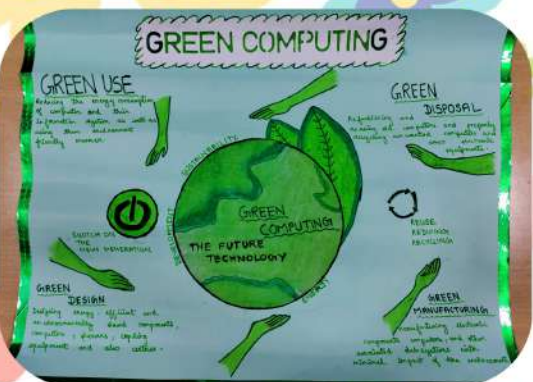 GREEN COMPUTING
GREEN USE
Reducing the energy consumption
of computers and their
information system as well as
using them environment
friendly manner.
GREEN
DISPOSAL
Refurbishing and
reusing old computers and properly
recycling unwanted computers and
other electronic
equipments.
SUSTAINABILITY
DEVELOPMENT
ENERGY
GREEN
COMPUTING
THE FUTURE
TECHNOLOGY
SWITCH ON
THE
NEW GENERATION
REUSE
REDUCING
RECYCLING
GREEN
DESIGN
Designing energy efficient and
environmentally sound components,
computers, servers, cooling
equipment and also
GREEN
MANUFACTURING
manufacturing electronic
components, computers, and other
associated subsystems with
minimal impact of the environment